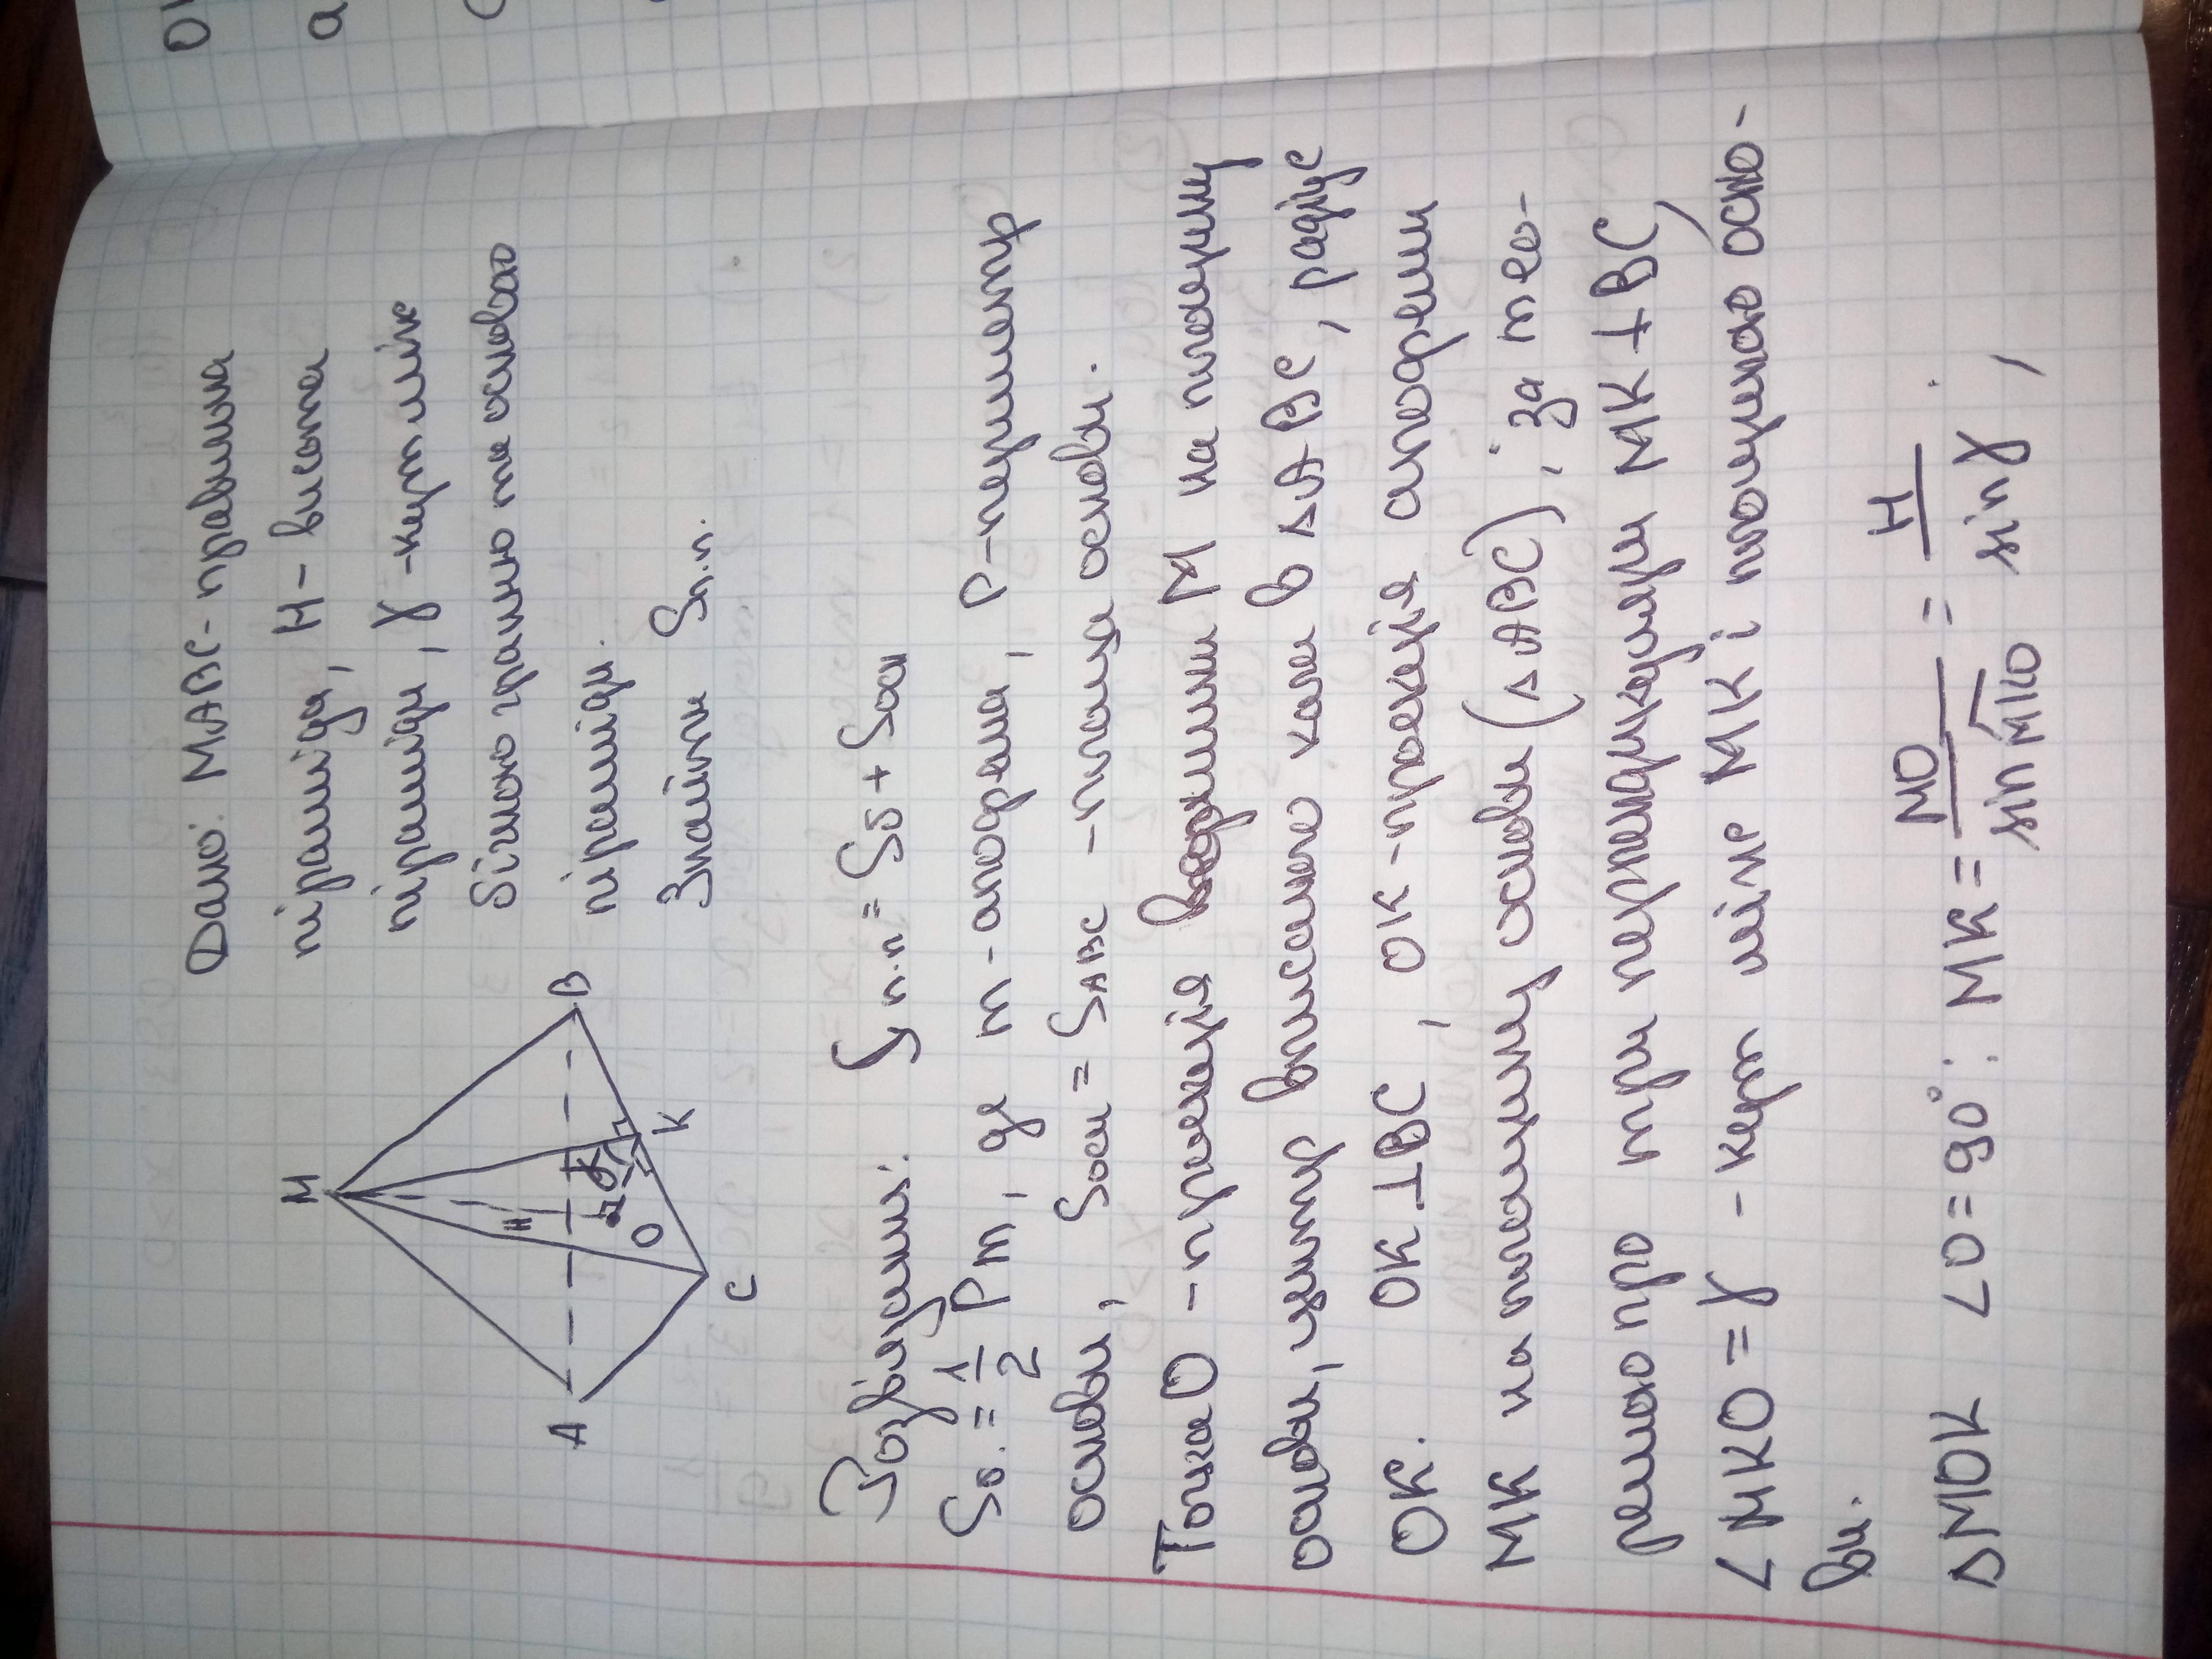 Дано: МАВС - правильна
піраміда, H - висота
піраміди, γ - кут між
бічною гранню та основою
піраміди.
Знайти Sп.п.
M
H
A
O
γ
K
B
C
Розв'язання: Sп.п = Sб + Sосн
Sб. = 1/2 Pm, де m - апофема, P - периметр
основи, Sосн = SABC - площа основи.
Точка O - проекція вершини M на площину
основи, центр вписаного кола в △ABC, радіус
OK. OK⊥BC, OK - проекція апофеми
MK на площину основи (△ABC), за тео-
ремою про три перпендикуляри MK⊥BC,
∠MKO = γ - кут між MK і площиною осно-
ви.
△MOK ∠O = 90°: MK = MO/sin MKO = H/sin γ,